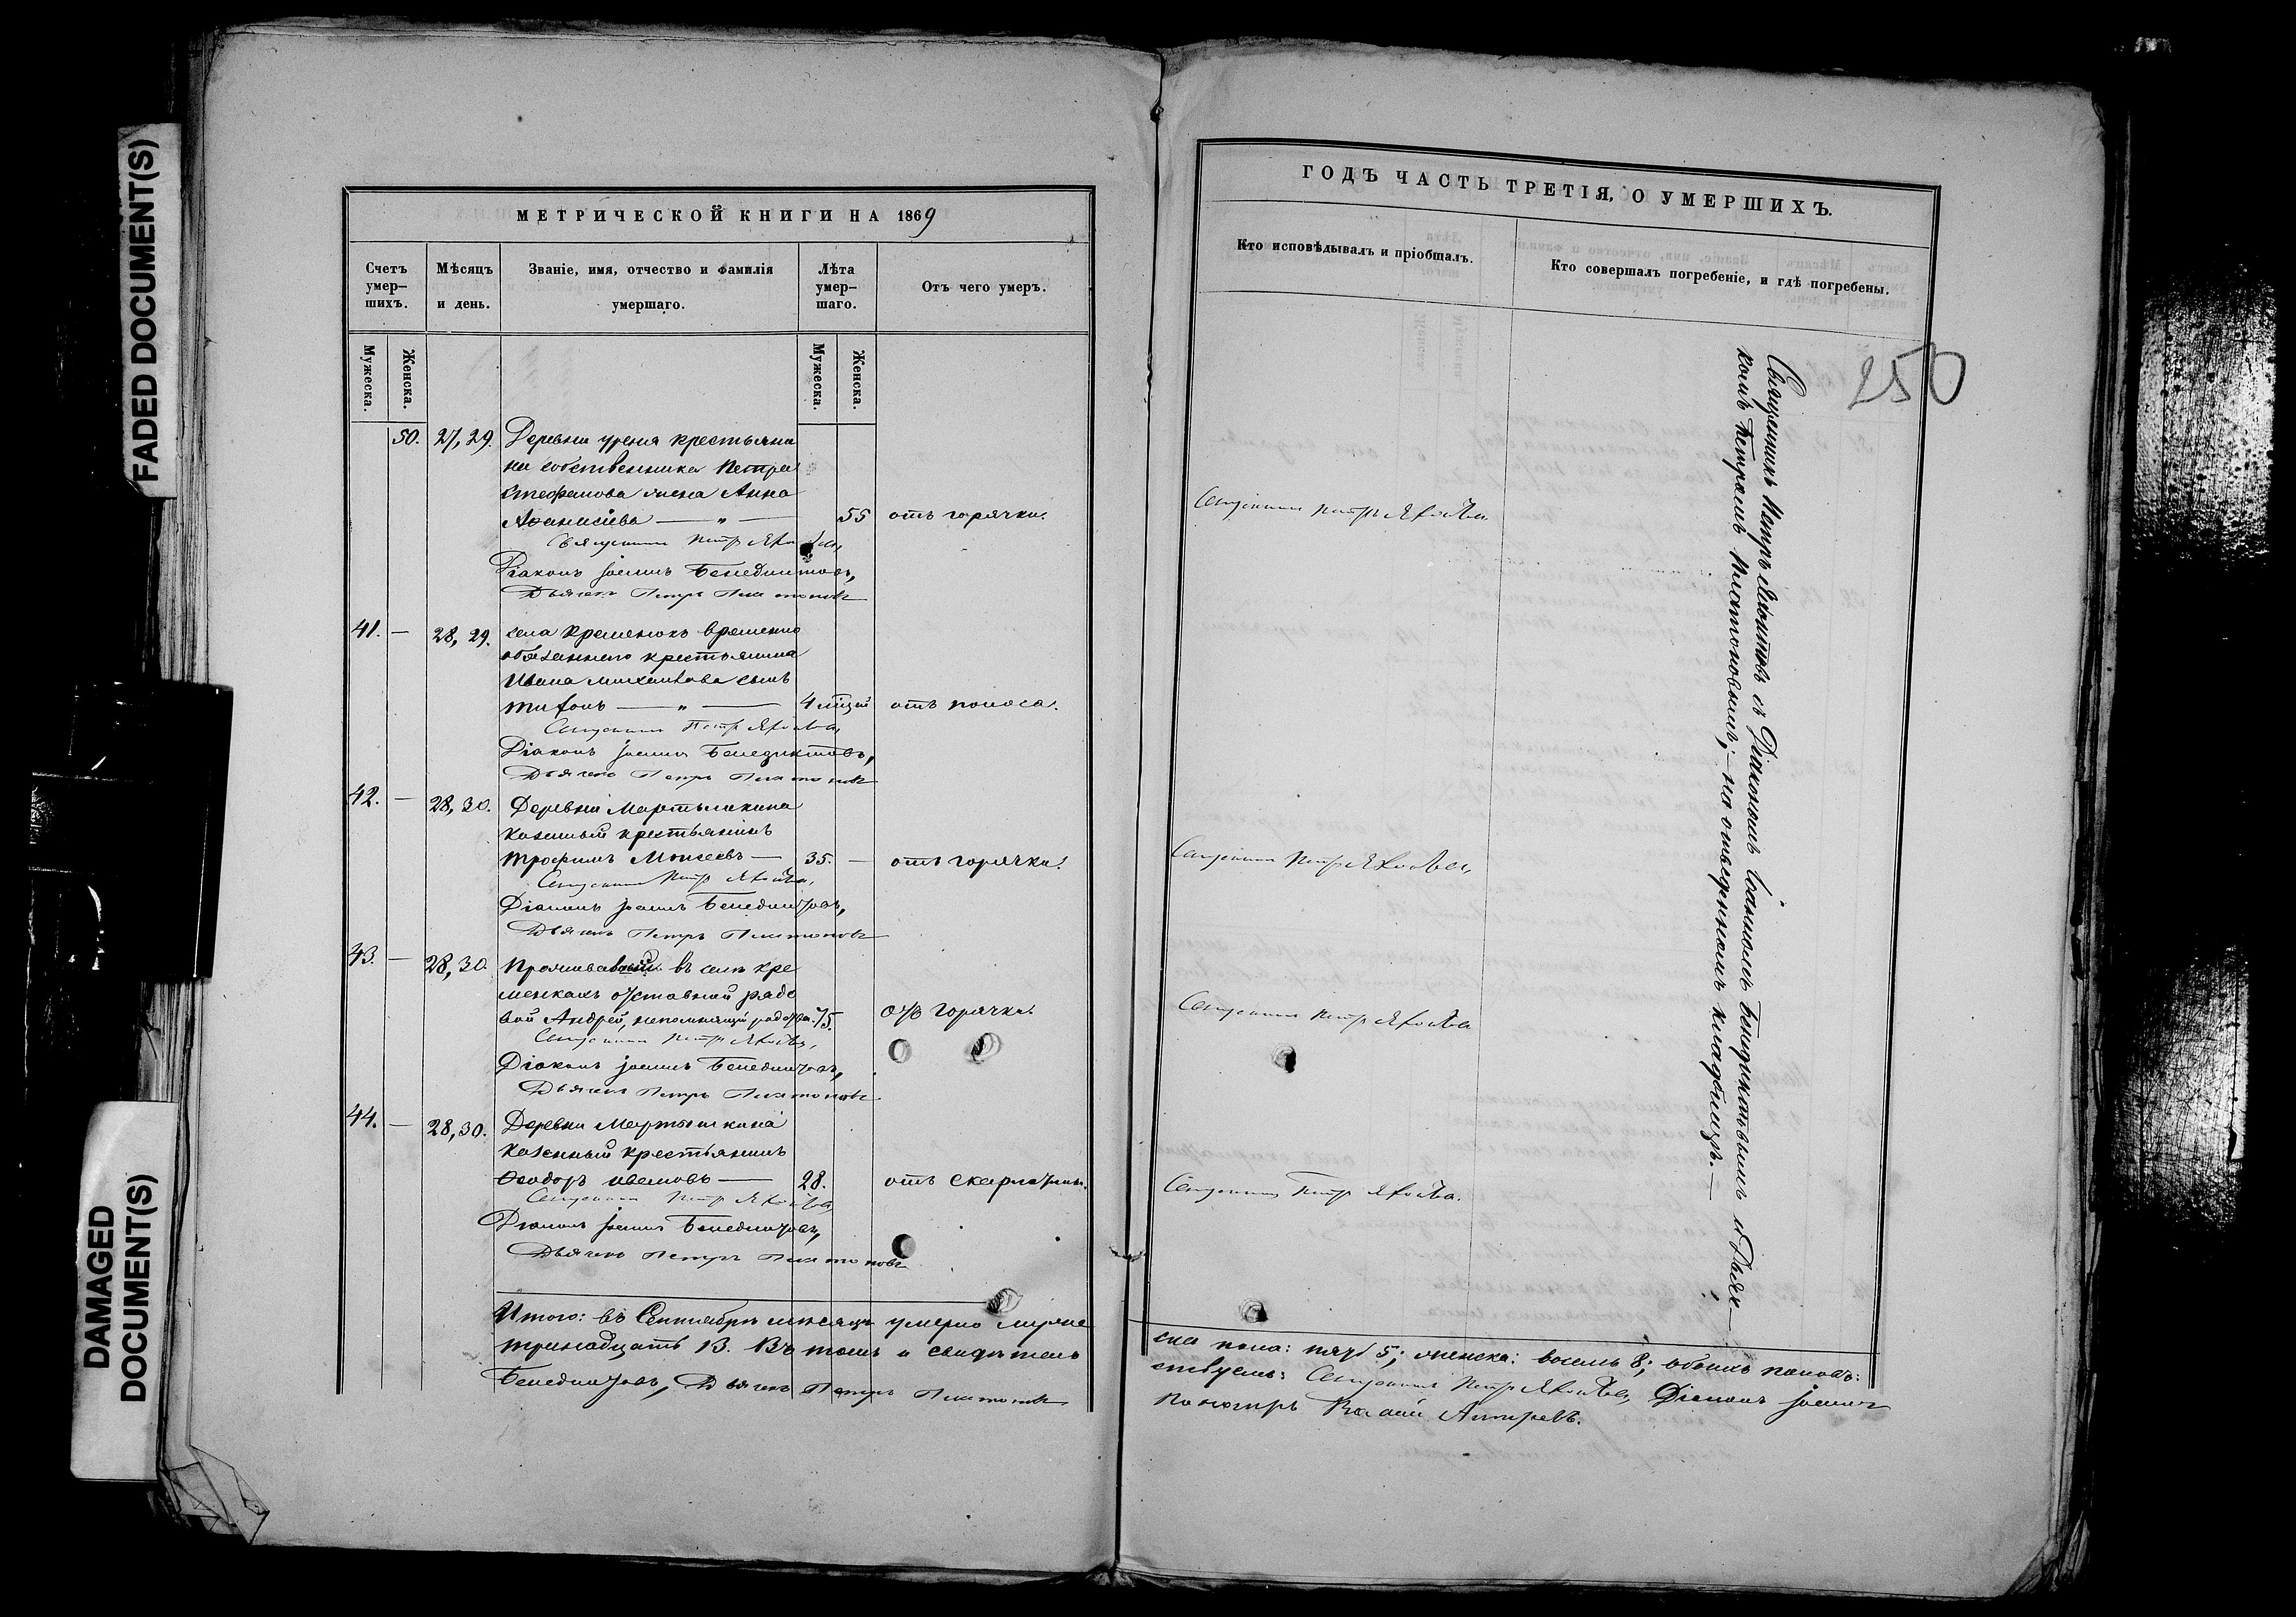 FADED DOCUMENT(S)
DAMAGED
DOCUMENT(S)
МЕТРИЧЕСКОЙ КНИГИ НА 1869
Счетъ умер-шихъ.
Мѣсяцъ и день.
Званіе, имя, отчество и фамилія умершаго.
Лѣта умер-шаго.
Отъ чего умеръ.
Мужеска.
Женска.
Мужеска.
Женска.
50. 27, 29. Деревни крестьяни
на собственника Петра
Стефанова жена Анна
Аѳанасіева — „ — 55 отъ горячки.
Священникъ Петръ
Діаконъ Іоаннъ Бенедиктовъ,
Дьячекъ Петръ Платоновъ
41. — 28, 29. села Кременокъ временно
обязаннаго крестьянина
Ивана Михайлова сынъ
Тихонъ — „ — 4 мѣсяц отъ поноса.
Священникъ Петръ
Діаконъ Іоаннъ Бенедиктовъ,
Дьячекъ Петръ Платоновъ
42. — 28, 30. Деревни Мартышкина
казенный крестьянинъ
Трофимъ Моисеевъ — 35. — отъ горячки.
Священникъ Петръ
Діаконъ Іоаннъ Бенедиктовъ,
Дьячекъ Петръ Платоновъ
43. — 28, 30. Проживавшій въ селѣ Кре
менкахъ отставной рядо
вой Андрей, непомнящій родства. 75. отъ горячки.
Священникъ Петръ
Діаконъ Іоаннъ Бенедиктовъ,
Дьячекъ Петръ Платоновъ
44. — 28, 30. Деревни Мартышкина
казенный крестьянинъ
Ѳеодоръ Ивановъ — 28. отъ скарлатины.
Священникъ Петръ
Діаконъ Іоаннъ Бенедиктовъ,
Дьячекъ Петръ Платоновъ
Итого: въ Сентябрѣ мѣсяцѣ умерло мужес
тринадцать 13. Въ томъ и свидѣтель
Бенедиктовъ, Дьячекъ Петръ Платоновъ
ГОДЪ ЧАСТЬ ТРЕТІЯ, О УМЕРШИХЪ.
Кто исповѣдывалъ и пріобщалъ.
Кто совершалъ погребеніе, и гдѣ погребены.
250
Священникъ Петръ
Священникъ Петръ
Священникъ Петръ
Священникъ Петръ
Священникъ Петръ съ Діакономъ Іоанномъ Бенедиктовымъ и Дьяч—
комъ Петромъ Платоновымъ, — на отведенномъ кладбищѣ. —
ска пола: пять 5; женска: восемь 8; обоихъ половъ:
ствуемъ: Священникъ Петръ Діаконъ Іоаннъ
Пономарь